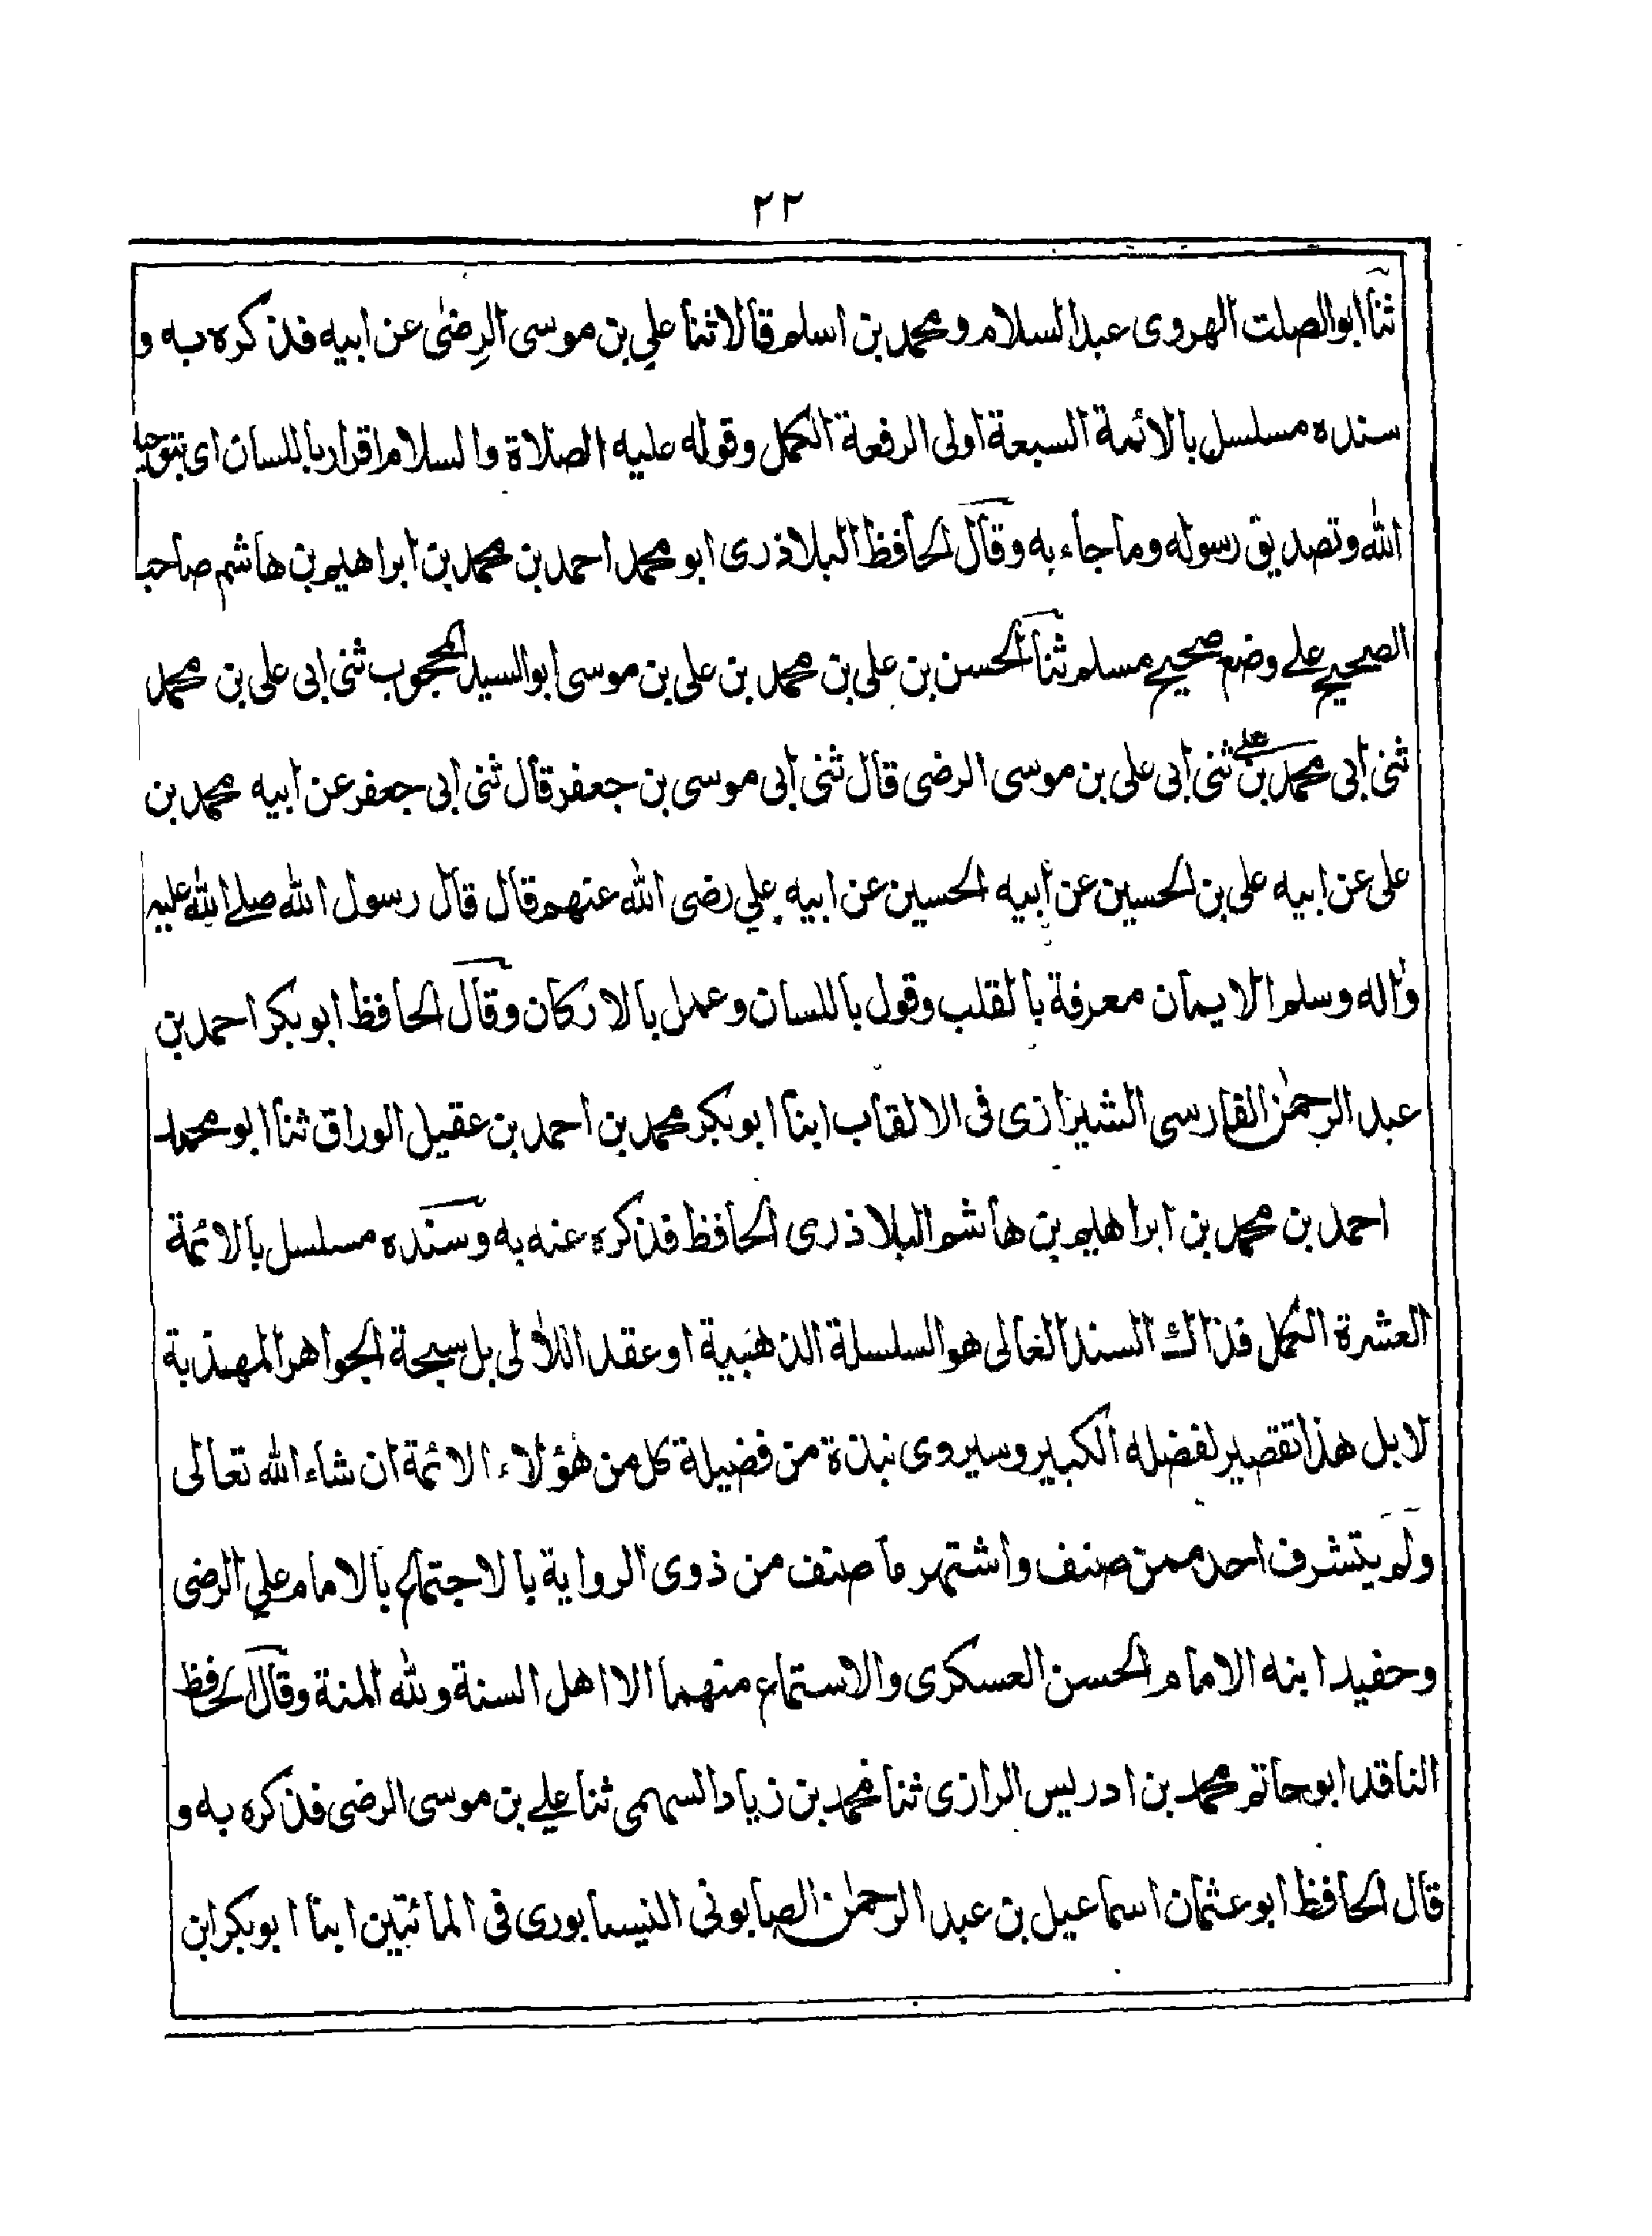 ٢٢
ثنا ابو الصلت الهروى عبد السلام ومحمد بن اسلم قالا ثنا علي بن موسى الرضى عن ابيه فذكره به و
سنده مسلسل بالائمة السبعة اولى الرفعة الكمل وقوله عليه الصلاة والسلام اقرار باللسان اى بتوحيد
الله وتصديق رسوله وما جاء به وقال الحافظ البلاذرى ابو محمد احمد بن محمد بن ابراهيم بن هاشم صاحب
الصحيح على وضع صحيح مسلم ثنا الحسن بن على بن محمد بن على بن موسى ابو السيد المحجوب ثنى ابى على بن محمد
ثنى ابى محمد بن على ثنى ابى على بن موسى الرضى قال ثنى ابى موسى بن جعفر قال ثنى ابى جعفر عن ابيه محمد بن
على عن ابيه على بن الحسين عن أبيه الحسين عن ابيه علي رضى الله عنهم قال قال رسول الله صلے الله عليه
واله وسلم الايمان معرفة بالقلب وقول باللسان وعمل بالاركان وقال الحافظ ابو بكر احمد بن
عبد الرحمٰن الفارسى الشيرازى فى الالقاب ابنا ابو بكر محمد بن احمد بن عقيل الوراق ثنا ابو محمد
احمد بن محمد بن ابراهيم بن هاشم البلاذرى الحافظ فذكره عنه به وسنده مسلسل بالائمة
العشرة الكمل فذاك السند الغالى هو السلسلة الذهبية او عقد اللالى بل سبحة الجواهر المهذبة
لا بل هذا تقصير لفضله الكبير وسيروى نبذة من فضيلة كل من هؤلاء الائمة ان شاء الله تعالى
ولم يتشرف احد ممن صنف واشتهر ما صنف من ذوى الرواية بالاجتماع بالامام علي الرضى
وحفيد ابنه الامام الحسن العسكرى والاستماع منهما الا اهل السنة ولله المنة وقال الحافظ
الناقد ابو حاتم محمد بن ادريس الرازى ثنا محمد بن زياد السهمى ثنا علے بن موسى الرضى فذكره به و
قال الحافظ ابو عثمان اسماعيل بن عبد الرحمٰن الصابونى النيسابورى فى المائتين ابنا ابو بكر ابن